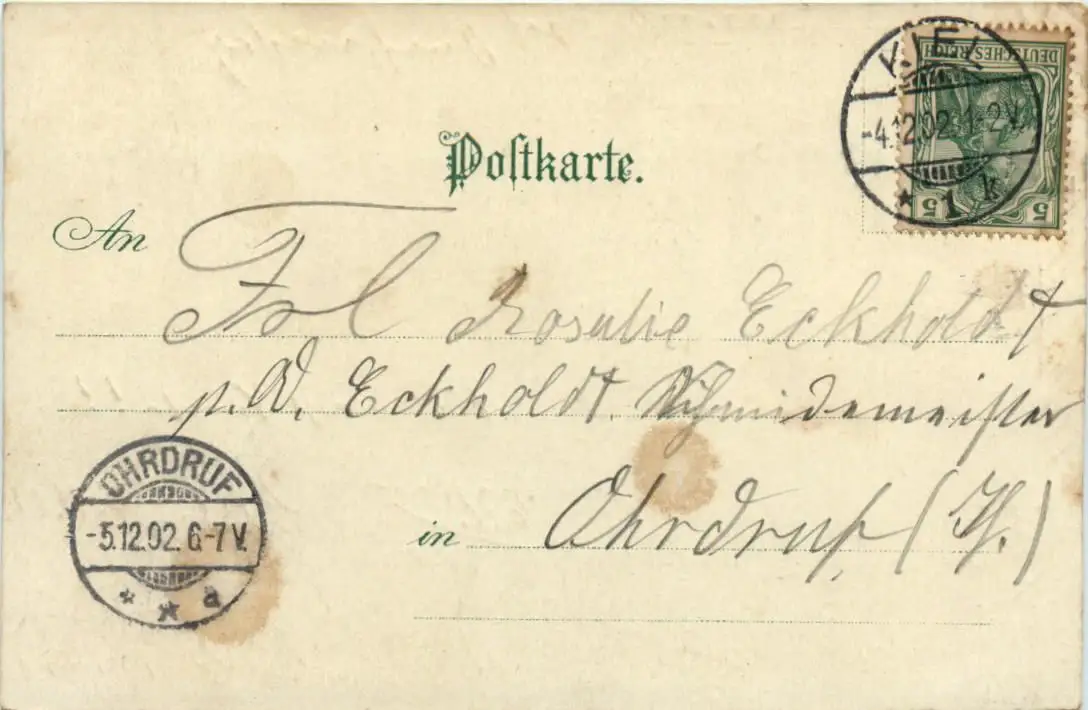 Postkarte.
DEUTSCHES REICH
5 5
KIEL
-4.12.02. 1-2V.
* 1 k
An Frl Rosalie Eckholdt
p. A. Eckholdt. Schmidemeister
in Ohrdruf (Th.)
OHRDRUF
-5.12.02. 6-7V.
* * a